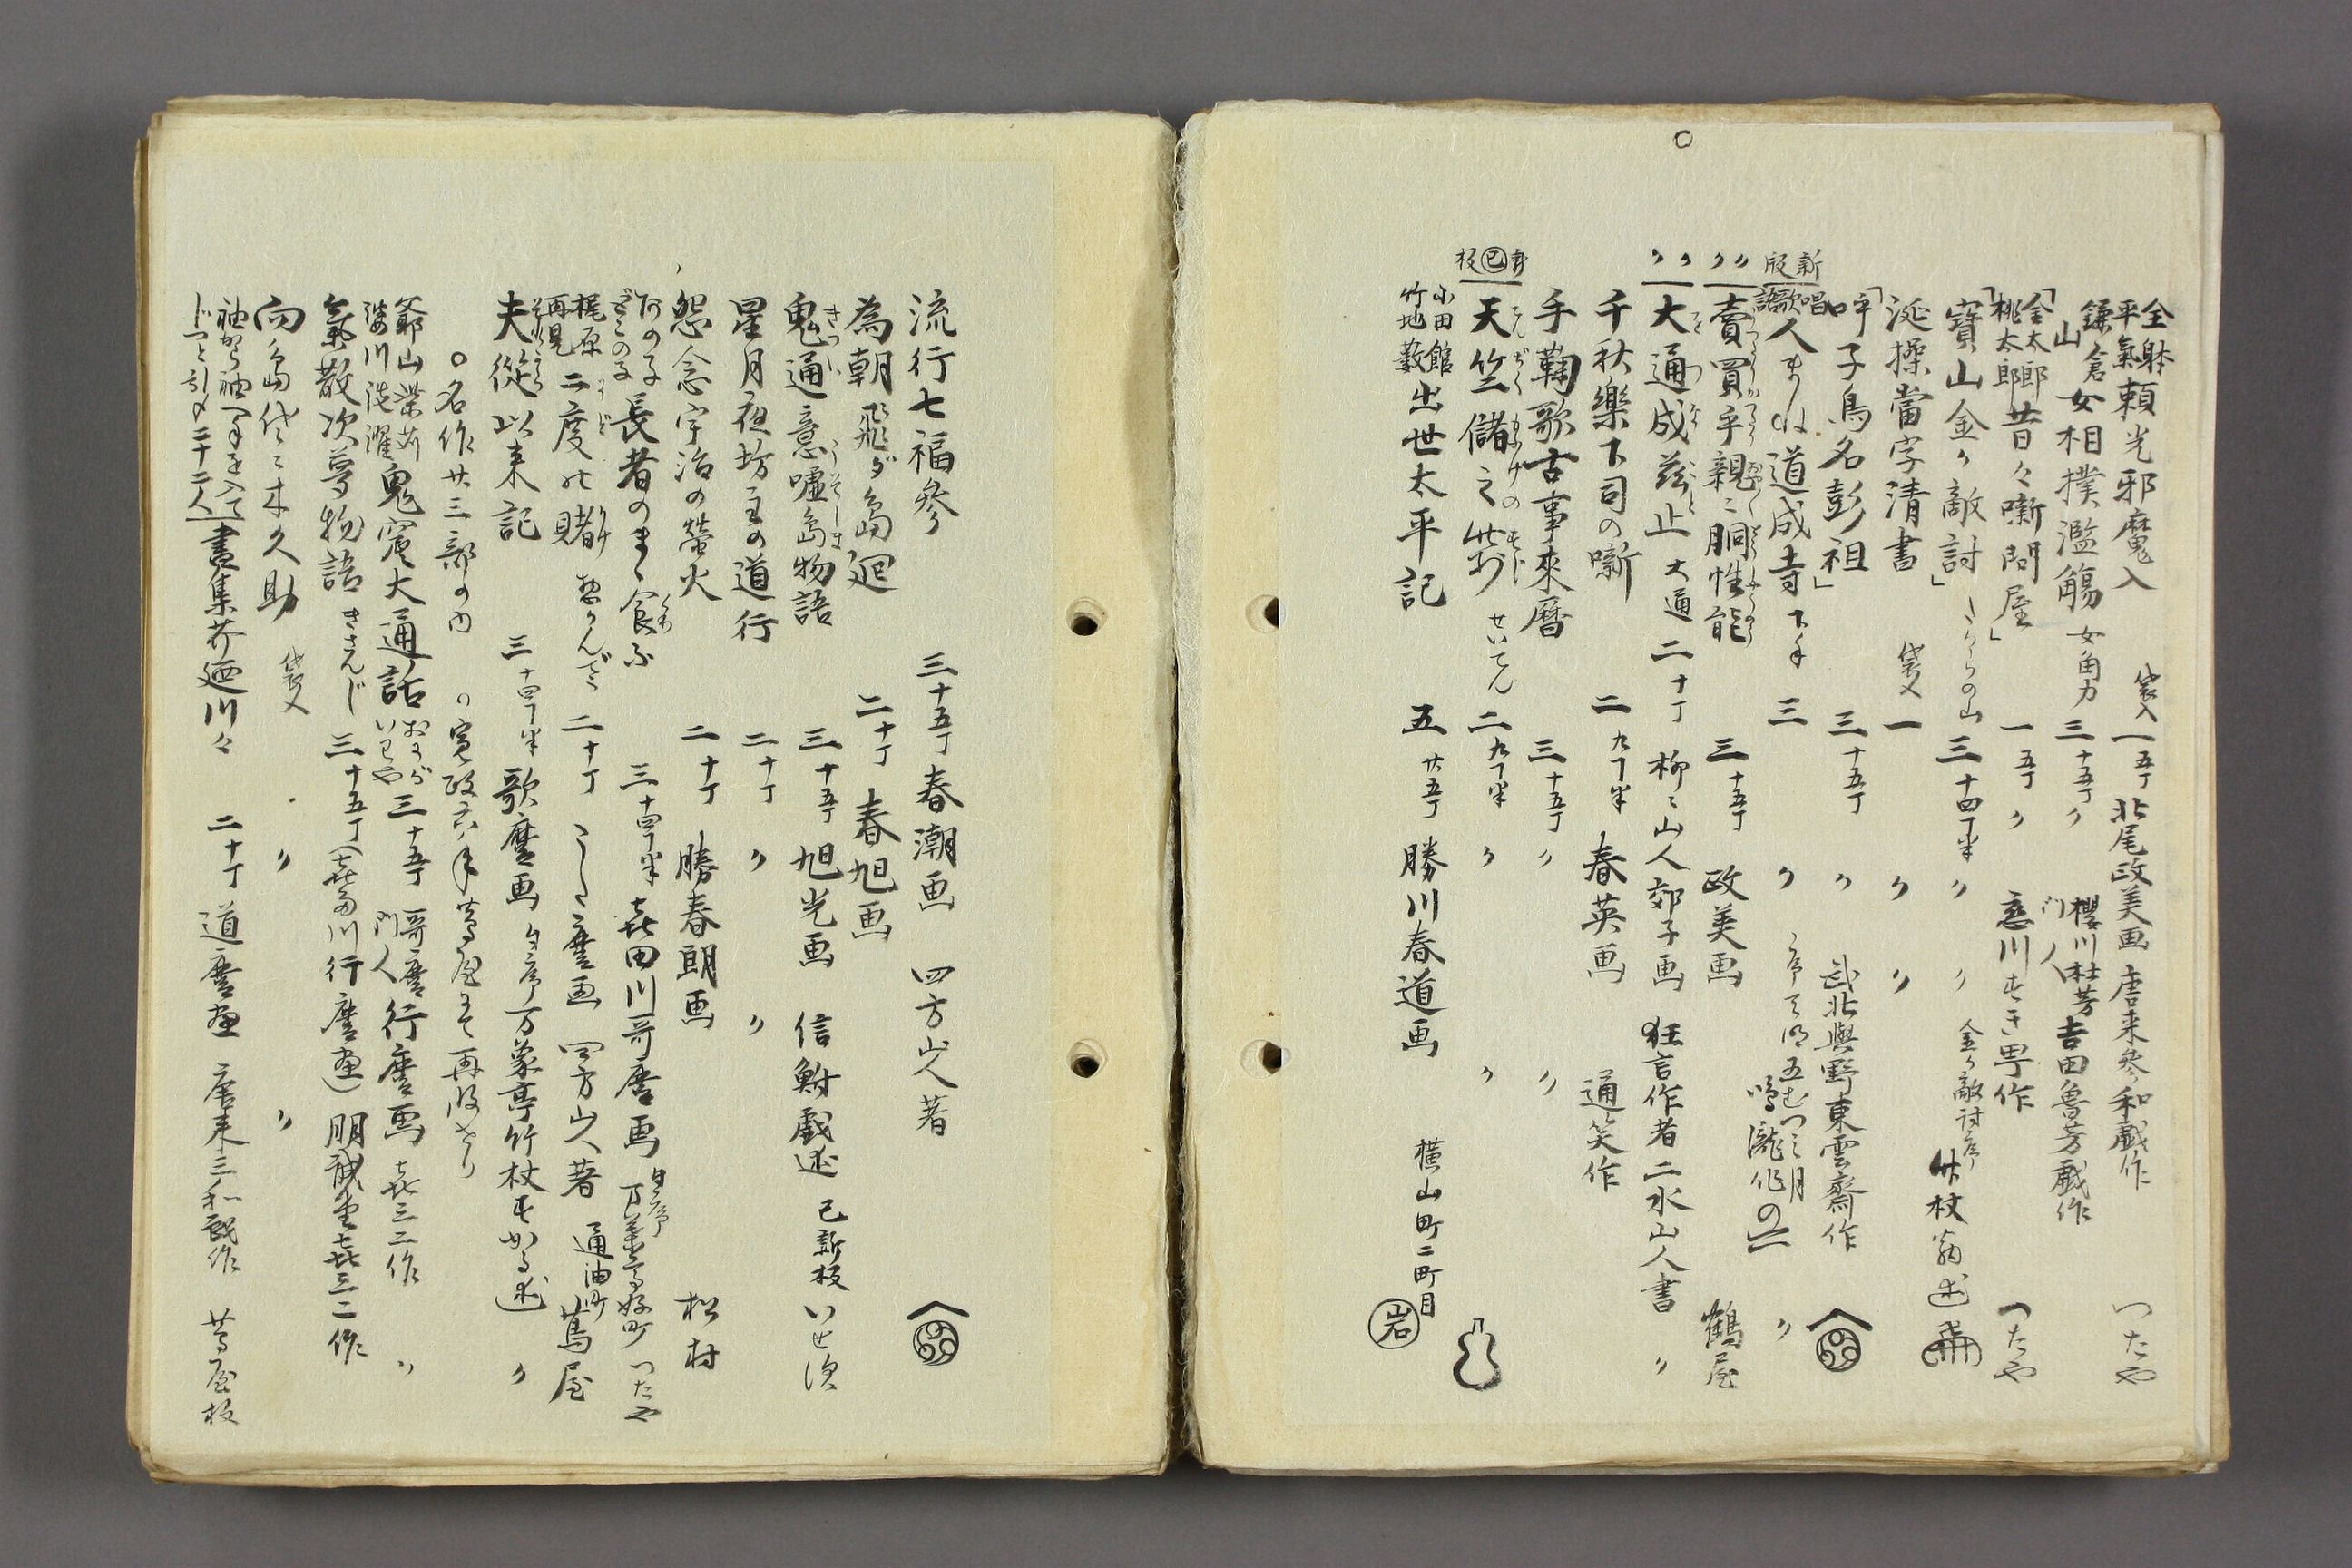 全躰平氣頼光邪魔入 袋入 一五丁 北尾政美画 唐来参和戯作 つたや
鎌倉山女相撲濫觴 女角力 三十五丁 〃 櫻川杜芳門人 吉田魯芳戯作
「金太郎桃太郎昔々噺問屋」 一五丁 〃 恋川すき町作 つたや
「寳山金ヶ敵討」 たからの山 三十四丁半 〃 〃 金ヶ敵討序 竹杖翁述
涎操當字清書 袋入 一 〃 〃
「呼子鳥名彭祖」 三十五丁 〃 武北與野東雲齋作
新版 唱歌 人まね道成寺 下手 三 〃 序天明五むつミ月 鳴瀧作の 〃
〃〃 賣買乎親ミ胴性能 三十五丁 政美画 鶴屋
〃〃 大通成茲止 大通 二十丁 柳ミ山人郊子画 狂言作者二水山人書 〃
千秋樂下司の噺 二九丁半 春英画 通笑作
手鞠歌古事來暦 三十五丁 〃 〃
新巳板 天竺儲之筋 てんぢくもうけのすじ せいてん 二九丁半 〃 〃
小田館竹地藪 出世太平記 五廿五丁 勝川春道画 横山町二町目 岩
流行七福参 三十五丁 春潮画 四方山人著
為朝飛ダ島廻 二十丁 春旭画
鬼通意嘘島物語 きつい うそしま 三十五丁 旭光画 信鮒戯述 巳新板 いせ次
星月夜坊主の道行 二十丁 〃 〃
怨念宇治の螢火 二十丁 勝春朗画 松村
長者のまゝ食ふ 三十四丁半 喜田川哥麿画 自序 万 つたや
梶原再見二度の賭 二十丁 麿画 四方山人著 通油町 蔦屋
夫従以来記 それから 三十四丁半 歌麿画 自序 万象亭竹杖すがる述 〃
○名作廿三部の内 寛政六年蔦屋にて再版せり
爺山柴苅婆川洗濯 鬼窟大通話 おにがいわや 三十五丁 哥麿門人 行麿画 喜三二作 〃
氣散次夢物語 きさんじ 三十五丁 (喜多川行麿画) 朋誠堂喜三二作
向島代ミ木久助 袋入 〃 〃
袖から袖へ手を入てじつと引〆二十二人 書集芥廼川々 二十丁 道麿画 唐来三和戯作 蔦屋板